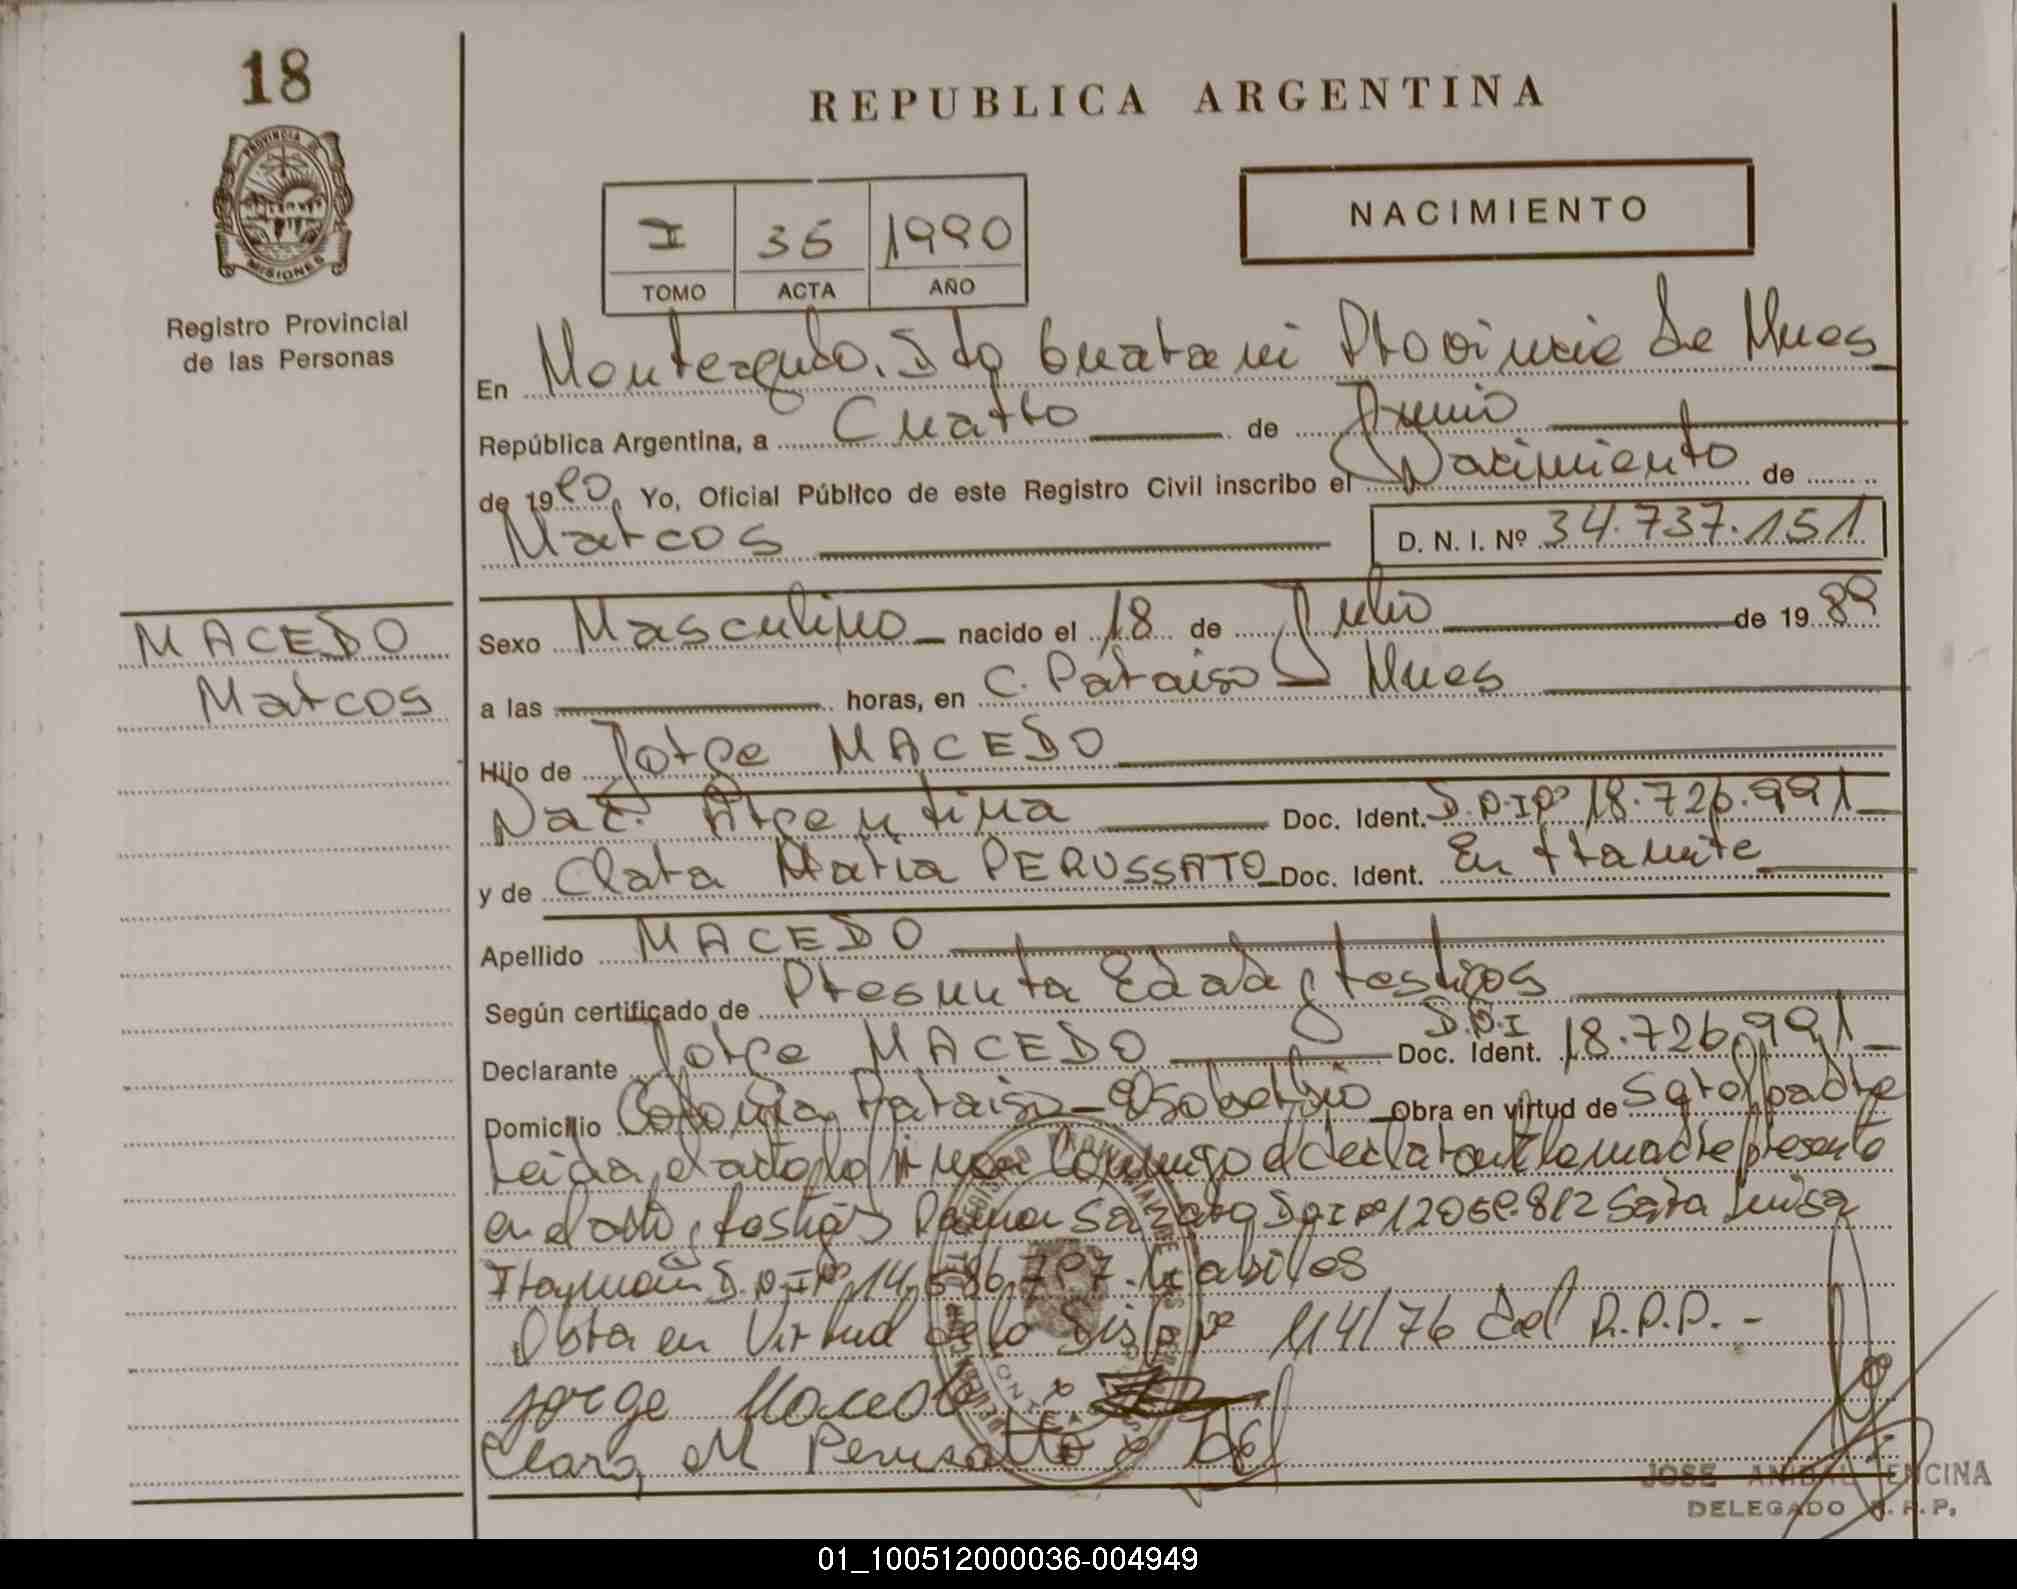 18
PROVINCIA DE
MISIONES
Registro Provincial
de las Personas
MACEDO
Marcos
REPUBLICA ARGENTINA
I 35 1990
TOMO ACTA AÑO
NACIMIENTO
En Monteagudo. Dto Guarani Provincia de Mnes
República Argentina, a Cuatro de Junio
de 1990, Yo, Oficial Público de este Registro Civil inscribo el Nacimiento de
Marcos D. N. I. Nº 34.737.151
Sexo Masculino nacido el 18 de Julio de 1989
a las horas, en C. Paraiso Mnes
Hijo de Jorge MACEDO
Nac. Argentina Doc. Ident. D.N.I Nº 18.726.991
y de Clara Maria PERUSSATO Doc. Ident. En tramite
Apellido MACEDO
Según certificado de Presunta Edad y testigos
Declarante Jorge MACEDO Doc. Ident. D.N.I 18.726.991
Domicilio Colonia Paraiso Obra en virtud de ser el padre
Leida el acta la firman Conmigo el declarante la madre presente
en el acto y testigos Ramon D.N.I Nº Sara Luisa
D.N.I Nº 14.586.797. habiles
Obra en Virtud de la Disp Nº 114/76 del R.P.P. -
Jorge Macedo
Clara M Perusatto
JOSE ANIBAL ENCINA
DELEGADO R.P.P.
01_100512000036-004949